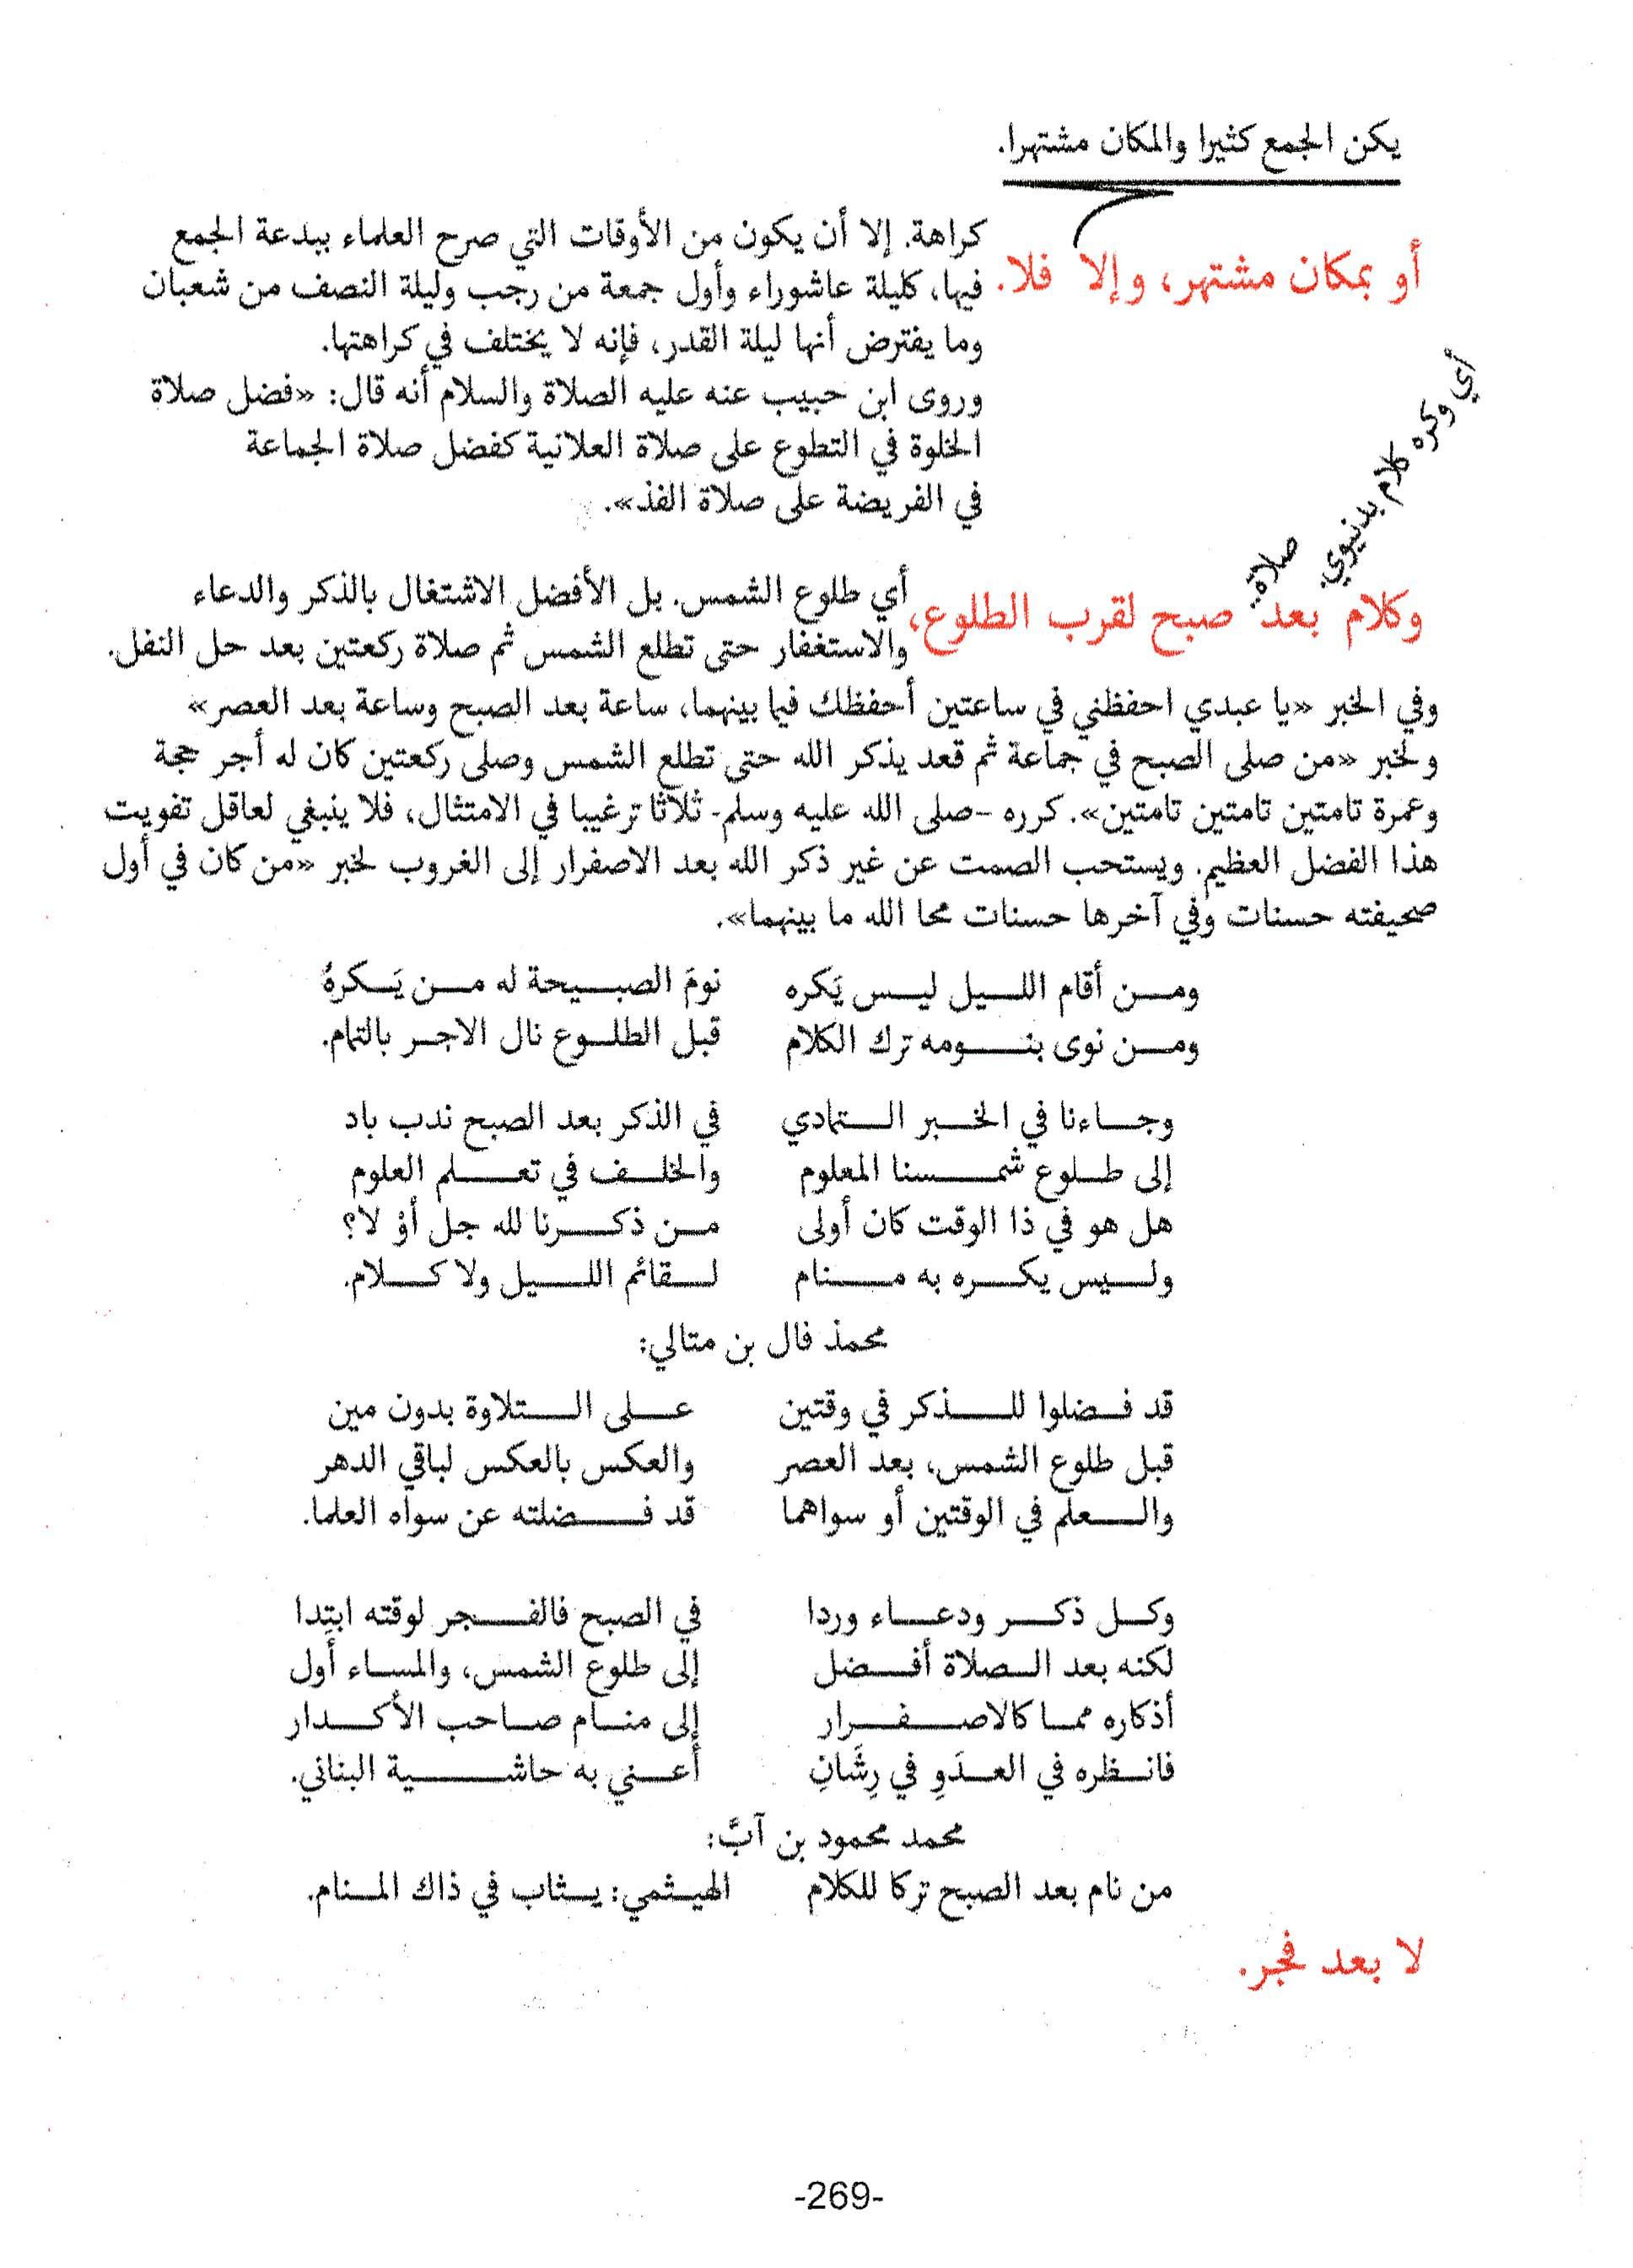 يكن الجمع كثيرا والمكان مشتهرا.
أو بمكان مشتهر، وإلا فلا.
كراهة. إلا أن يكون من الأوقات التي صرح العلماء ببدعة الجمع
فيها، كليلة عاشوراء وأول جمعة من رجب وليلة النصف من شعبان
وما يفترض أنها ليلة القدر، فإنه لا يختلف في كراهتها.
وروى ابن حبيب عنه عليه الصلاة والسلام أنه قال: «فضل صلاة
الخلوة في التطوع على صلاة العلانية كفضل صلاة الجماعة
في الفريضة على صلاة الفذ».
أي وكره كلام بدنيوي
صلاة
وكلام بعد صبح لقرب الطلوع،
أي طلوع الشمس. بل الأفضل الاشتغال بالذكر والدعاء
والاستغفار حتى تطلع الشمس ثم صلاة ركعتين بعد حل النفل.
وفي الخبر «يا عبدي احفظني في ساعتين أحفظك فيما بينهما، ساعة بعد الصبح وساعة بعد العصر»
ولخبر «من صلى الصبح في جماعة ثم قعد يذكر الله حتى تطلع الشمس وصلى ركعتين كان له أجر حجة
وعمرة تامتين تامتين تامتين». كرره -صلى الله عليه وسلم- ثلاثا ترغيبا في الامتثال، فلا ينبغي لعاقل تفويت
هذا الفضل العظيم. ويستحب الصمت عن غير ذكر الله بعد الاصفرار إلى الغروب لخبر «من كان في أول
صحيفته حسنات وفي آخرها حسنات محا الله ما بينهما».
ومن أقام الليل ليس يَكره نومَ الصبيحة له من يَكرهُ
ومن نوى بنومه ترك الكلام قبل الطلوع نال الاجر بالتمام.
وجاءنا في الخبر التمادي في الذكر بعد الصبح ندب باد
إلى طلوع شمسنا المعلوم والخلف في تعلم العلوم
هل هو في ذا الوقت كان أولى من ذكرنا لله جل أوْ لا؟
وليس يكره به منام لقائم الليل ولا كلام.
محمذ فال بن متالي:
قد فضلوا للذكر في وقتين على التلاوة بدون مين
قبل طلوع الشمس، بعد العصر والعكس بالعكس لباقي الدهر
والعلم في الوقتين أو سواهما قد فضلته عن سواه العلما.
وكل ذكر ودعاء وردا في الصبح فالفجر لوقته ابتِدا
لكنه بعد الصلاة أفضل إلى طلوع الشمس، والمساء أول
أذكاره مما كالاصفرار إلى منام صاحب الأكدار
فانظره في العدَوِ في رِشَانِ أعني به حاشية البناني.
محمد محمود بن آبَّ:
من نام بعد الصبح تركا للكلام الهيثمي: يثاب في ذاك المنام.
لا بعد فجر.
-269-